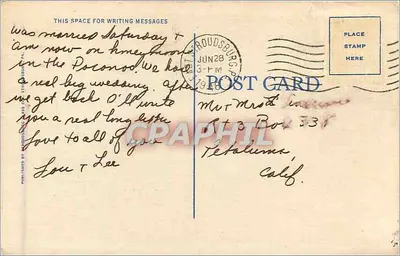 THIS SPACE FOR WRITING MESSAGES
was married Saturday +
am now on honeymoon
in the Poconos. We had
a real big wedding. After
we get back I'll write
you a real long letter
Love to all of you
Lou + Lee
STROUDSBURG, PA.
JUN 28
3-PM
PLACE
STAMP
HERE
POST CARD
Mr + Mrs
Rt 3 Box 338
Petaluma,
Calif.
CPRAPHIL